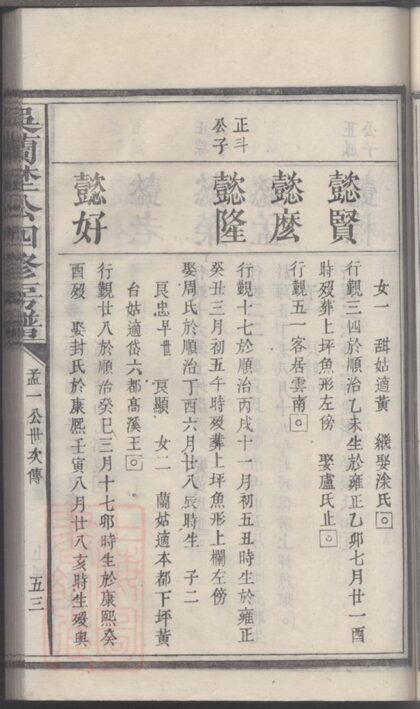 女一 甜姑適黃 繼娶涂氏
懿賢
行觀三四於順治乙未生於雍正乙卯七月廿一酉
時歿葬上坪魚形左傍 娶盧氏止
懿麽
行觀五一客居雲南
正斗公子
懿隆
行觀十七於順治丙戌十一月初五丑時生於雍正
癸丑三月初五午時歿葬上坪魚形上欄左傍
娶周氏於順治丁酉六月廿八辰時生 子二
良忠早世 良顯 女二 蘭姑適本都下坪黃
台姑適岱六都髙溪王
懿好
行觀廿八於順治癸巳三月十七卯時生於康熙癸
酉歿 娶封氏於康熙壬寅八月廿八亥時生歿與
吳蘭塋公四修房譜
孟一公世次傳
五三